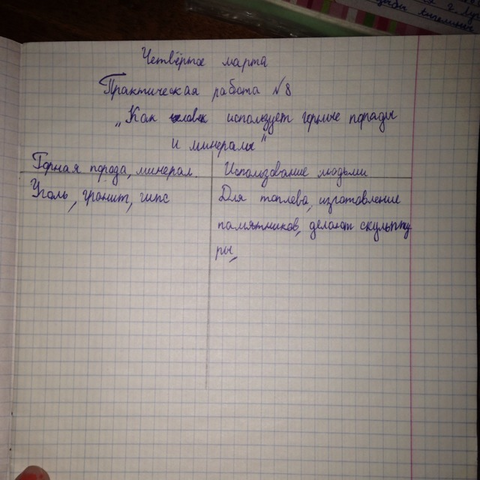 Четвёртое марта
Практическая работа №8
"Как человек использует горные породы
и минералы"
Горная порода, минерал. Использование людьми
Уголь, гранит, гипс Для топлева, изготовление
памятников, делают скульпту
ры,